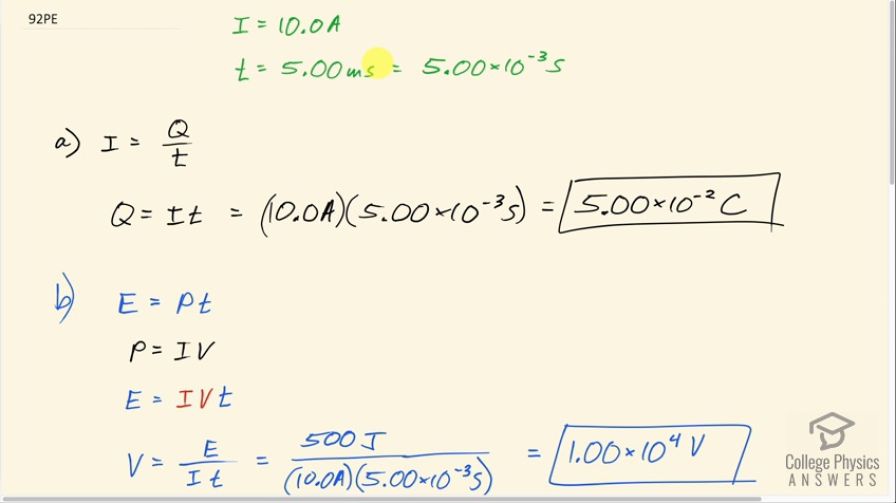 92PE
I = 10.0A
t = 5.00ms = 5.00×10⁻³ s
a) I = Q/t
Q = It = (10.0A)(5.00×10⁻³s) = 5.00×10⁻² C
b) E = Pt
P = IV
E = IVt
V = E/It = 500J/(10.0A)(5.00×10⁻³s) = 1.00×10⁴ V
College Physics
ANSWERS